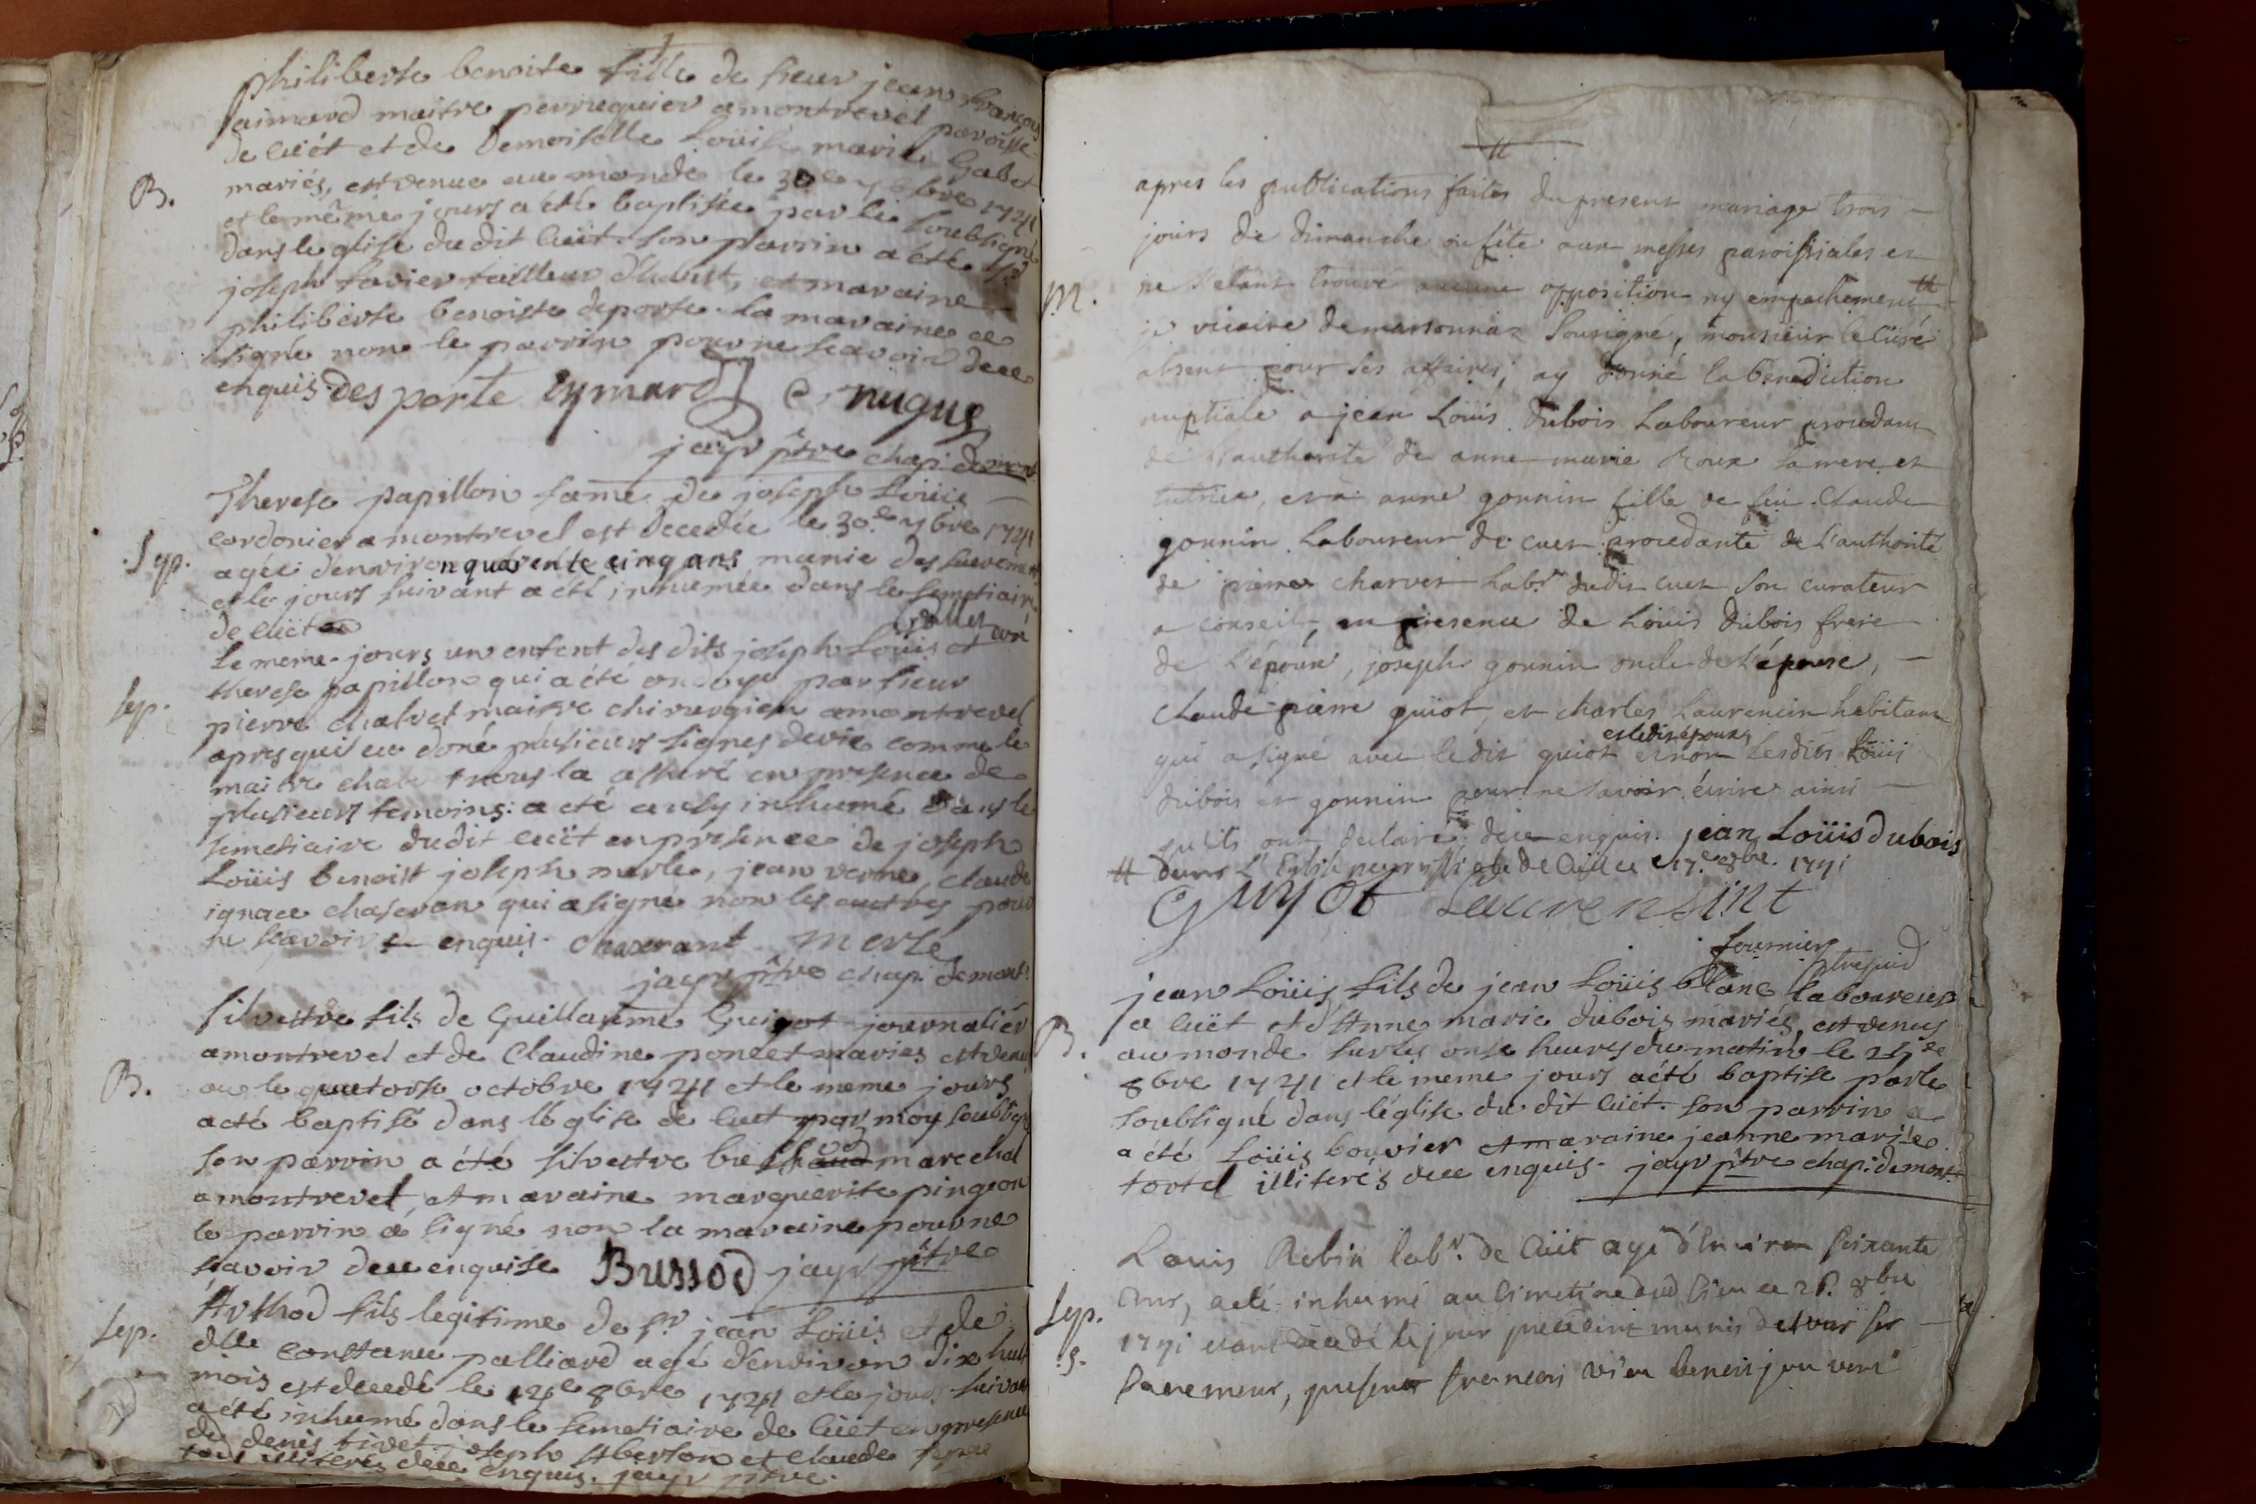 philiberte benoite fille de sieur jean françois
aimard maitre perruquier a montrevel paroisse
de cuet et de Demoiselle Loüise marie Gabet
B. mariés, est venue au monde le 30e 7bre 1741
et le même jours a été baptisée par le soubsigné
dans leglise du dit cuët. son parrin a été sr
joseph favier tailleur d'habist, et maraine
philiberte benoiste deporte. la maraine a
signé non le parrin pour ne scavoir dece
enquis. des porte Eymard nugue
jayr ptre chap: de mont
Therese papillon fame de joseph Loüis
cordonier a montrevel est decedée le 30e 7bre 1741
Sep. agée denviron quarente cinq ans munie des sacremens
et le jours suivant a été inhumée dans le semetiaire
de cuët
Le meme jours un enfent des dits joseph Louis et
Sep. therese papillon qui a été ondoye par sieur
pierre chalvet maitre chirurgien a montrevel
apres quil eu doné plusieurs signes de vie comme le
maitre chalvet nous la assuré en presence de
plusieurs temoins: a été aussy inhumé dans le
semetiaire dudit cuët en presence de joseph
Loüis benoist joseph merle, jean verne, claude
ignace chaseran qui a signé non les autres pour
ne scavoir enquis. chaserant merle
jayr ptre chap: de mont:
Silvestre fils de Guillaume Guigot journalier
a montrevel et de Claudine poncet mariés est venu
B. au le quatorse octobre 1741 et le meme jours
a eté baptisé dans léglise de cuet par moy soubsigné
son parrin a été silvestre marechal
a montrevel, et maraine marguerite pingeon
le parrin a signé non la maraine pour ne
scavoir dece enquise Bussod jayr ptre
Sep. Arthod fils legitime de sr jean Loüis et de
dlle constance palliard agé denviron dix huit
mois est decedé le 12e 8bre 1741 et le jour suivant
a été inhumé dans le semetiaire de cuët en presence
de denis tivet joseph Aberton et claude
tous illiterés dece enquis. jayr ptre.
apres les publications faites du present mariage trois
jours de dimanche ou fête aux messes paroissiales et
M. ne s'etant trouvé aucune opposition ny empechement #
je vicaire de marsonnaz sousigné, monsieur le curé
absent pour ses affaires, ay donné la benediction
nuptiale a jean Loüis dubois Laboureur procedant
de l'authorité de anne marie Roux sa mere et
tutrice, et a anne gonnin fille de feu Claude
gonnin Laboureur de cuet procedante de l'authorité
de pierre charvet Labr dudit cuet son curateur
a conseil, en presence de Loüis dubois frere
de l'époux, joseph gonnin oncle de l'épouse,
Claude pierre guiot, et charles Laurencin habitans
qui a signé avec le dit guiot et ledit époux et non lesdits Loüis
dubois et gonnin pour ne savoir écrire ainsi
qu'ils ont declaré dece enquis. jean Loüis dubois
# dans l'Eglise parroissiale de Cuët ce 17e 8bre. 1741
Guyot Laurensint
fournier
jean Loüis fils de jean Loüis blanc laboureur
a cuët et d'Anne marie dubois mariés, est venus
B. au monde sur les onse heures du matin le 25e
8bre 1741 et le meme jours a été baptise par le
soubsigné dans léglise du dit cuët. son parrin a
a été Loüis bouvier et maraine jeanne marie
tortel illiterés dece enquis. jayr ptre chap: de mont.
Louis Robin labr. de Cuët agé d'environ soixante
Sep. ans, a eté inhumé au cimetiere dud lieu ce 28. 8bre
1741 etant decedé le jour precedent munis de tous ses
.s. Sacremens, presents francois vieu benoit jan vert